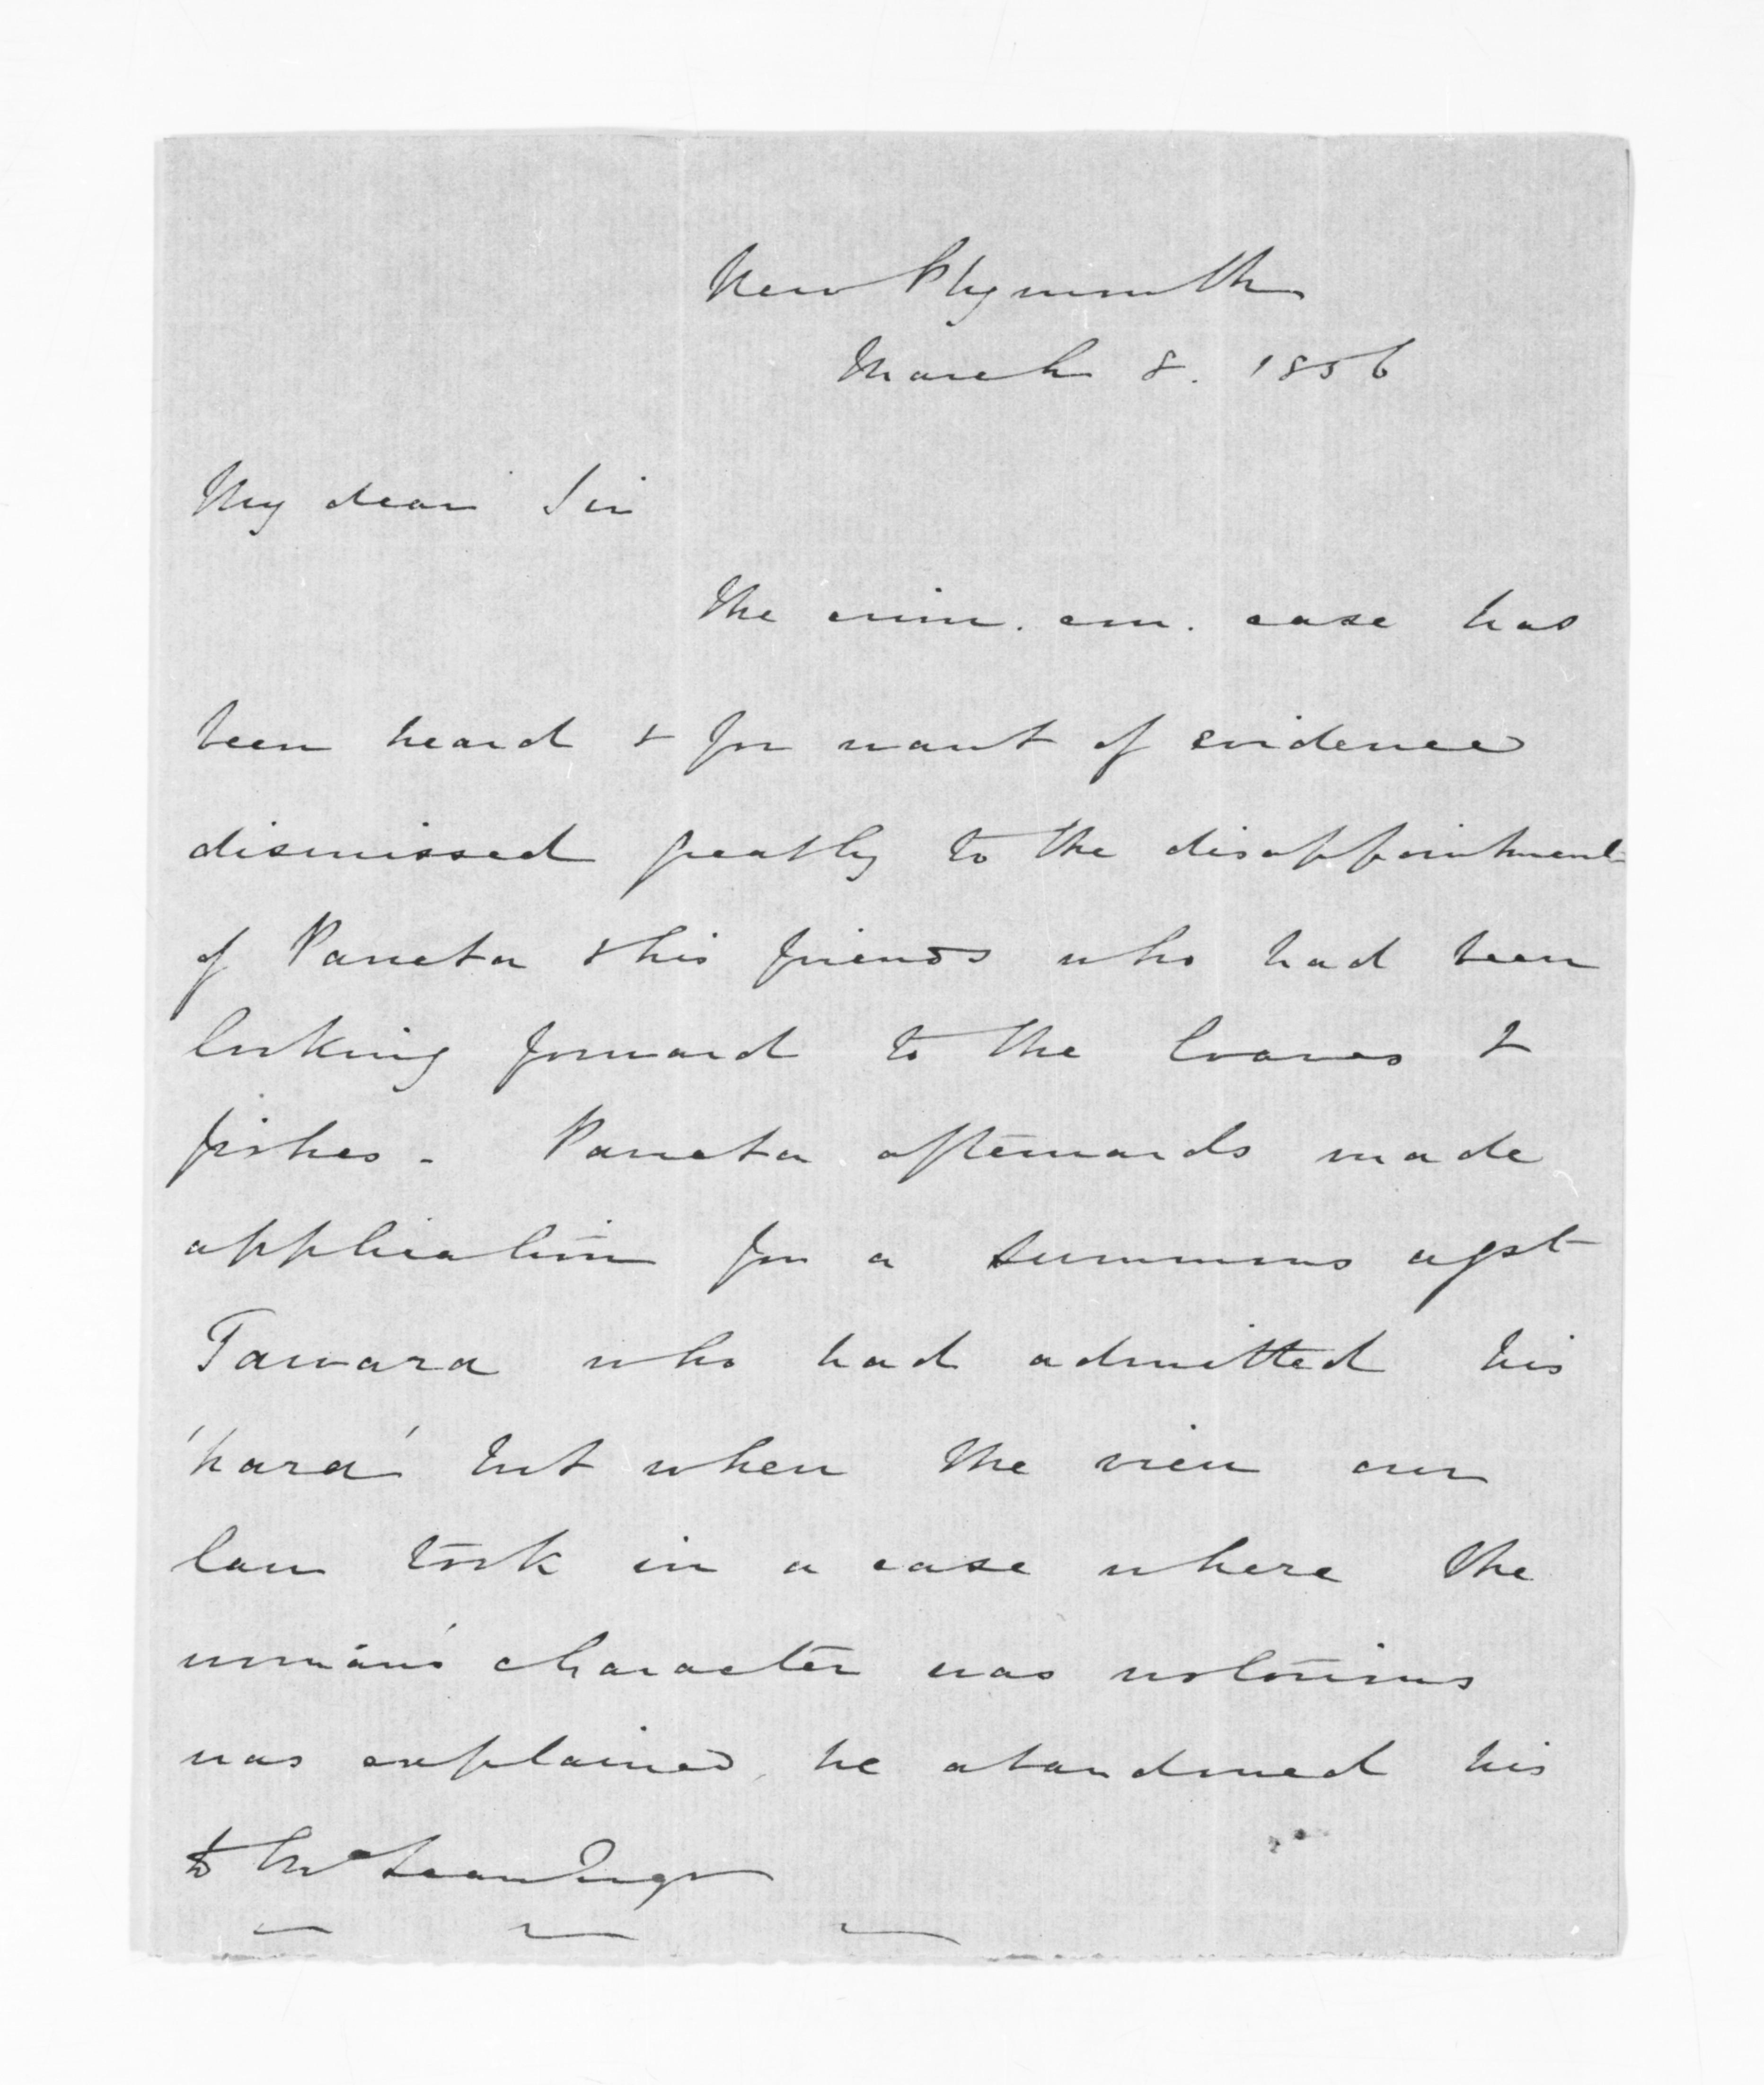 New Plymouth
March 8. 1856
My dear Sir
The crim. con. case has
been heard & for want of evidence
dismissed greatly to the disappointment
of Paneta & his friends who had been
looking forward to the loaves &
fishes - Paneta afterwards made
application for a summons agst
Tawara who had admitted his
'hara' but when the view our
law took in a case where the
woman's character was notorious
was explained, he abandoned his
to McLean Esqr